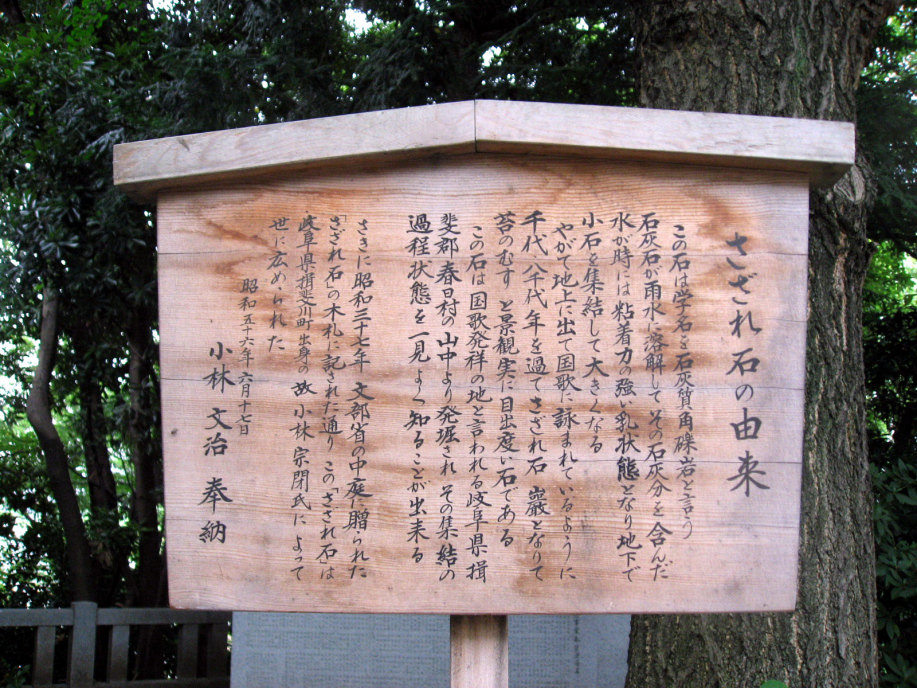 さざれ石の由来
この石は学名を石灰質角礫岩と言う
石灰石が雨水に溶解してその石灰分を含んだ
水が時には粘着力の強い乳状態となり地下で
小石を集結して大きくなる
やがて地上に出て国歌に詠まれているように
千代八千代年を過てさざれ石 巌となりて
苔のむすと景観実に目出度い石である
この石は国歌発祥の地と言われる岐阜県揖
斐郡春日村の山中より発堀されその集結の
過程状態を一見よく知ることが出来る
さきに昭和三十七年 文部省の中庭に贈られた
「さざれ石」の木札に記された通り この「さざれ石」は
岐阜県揖斐川町出身の故 小林宗閉氏によって
世に広められた
昭和五十六年 六月十七日
小林文治奉納